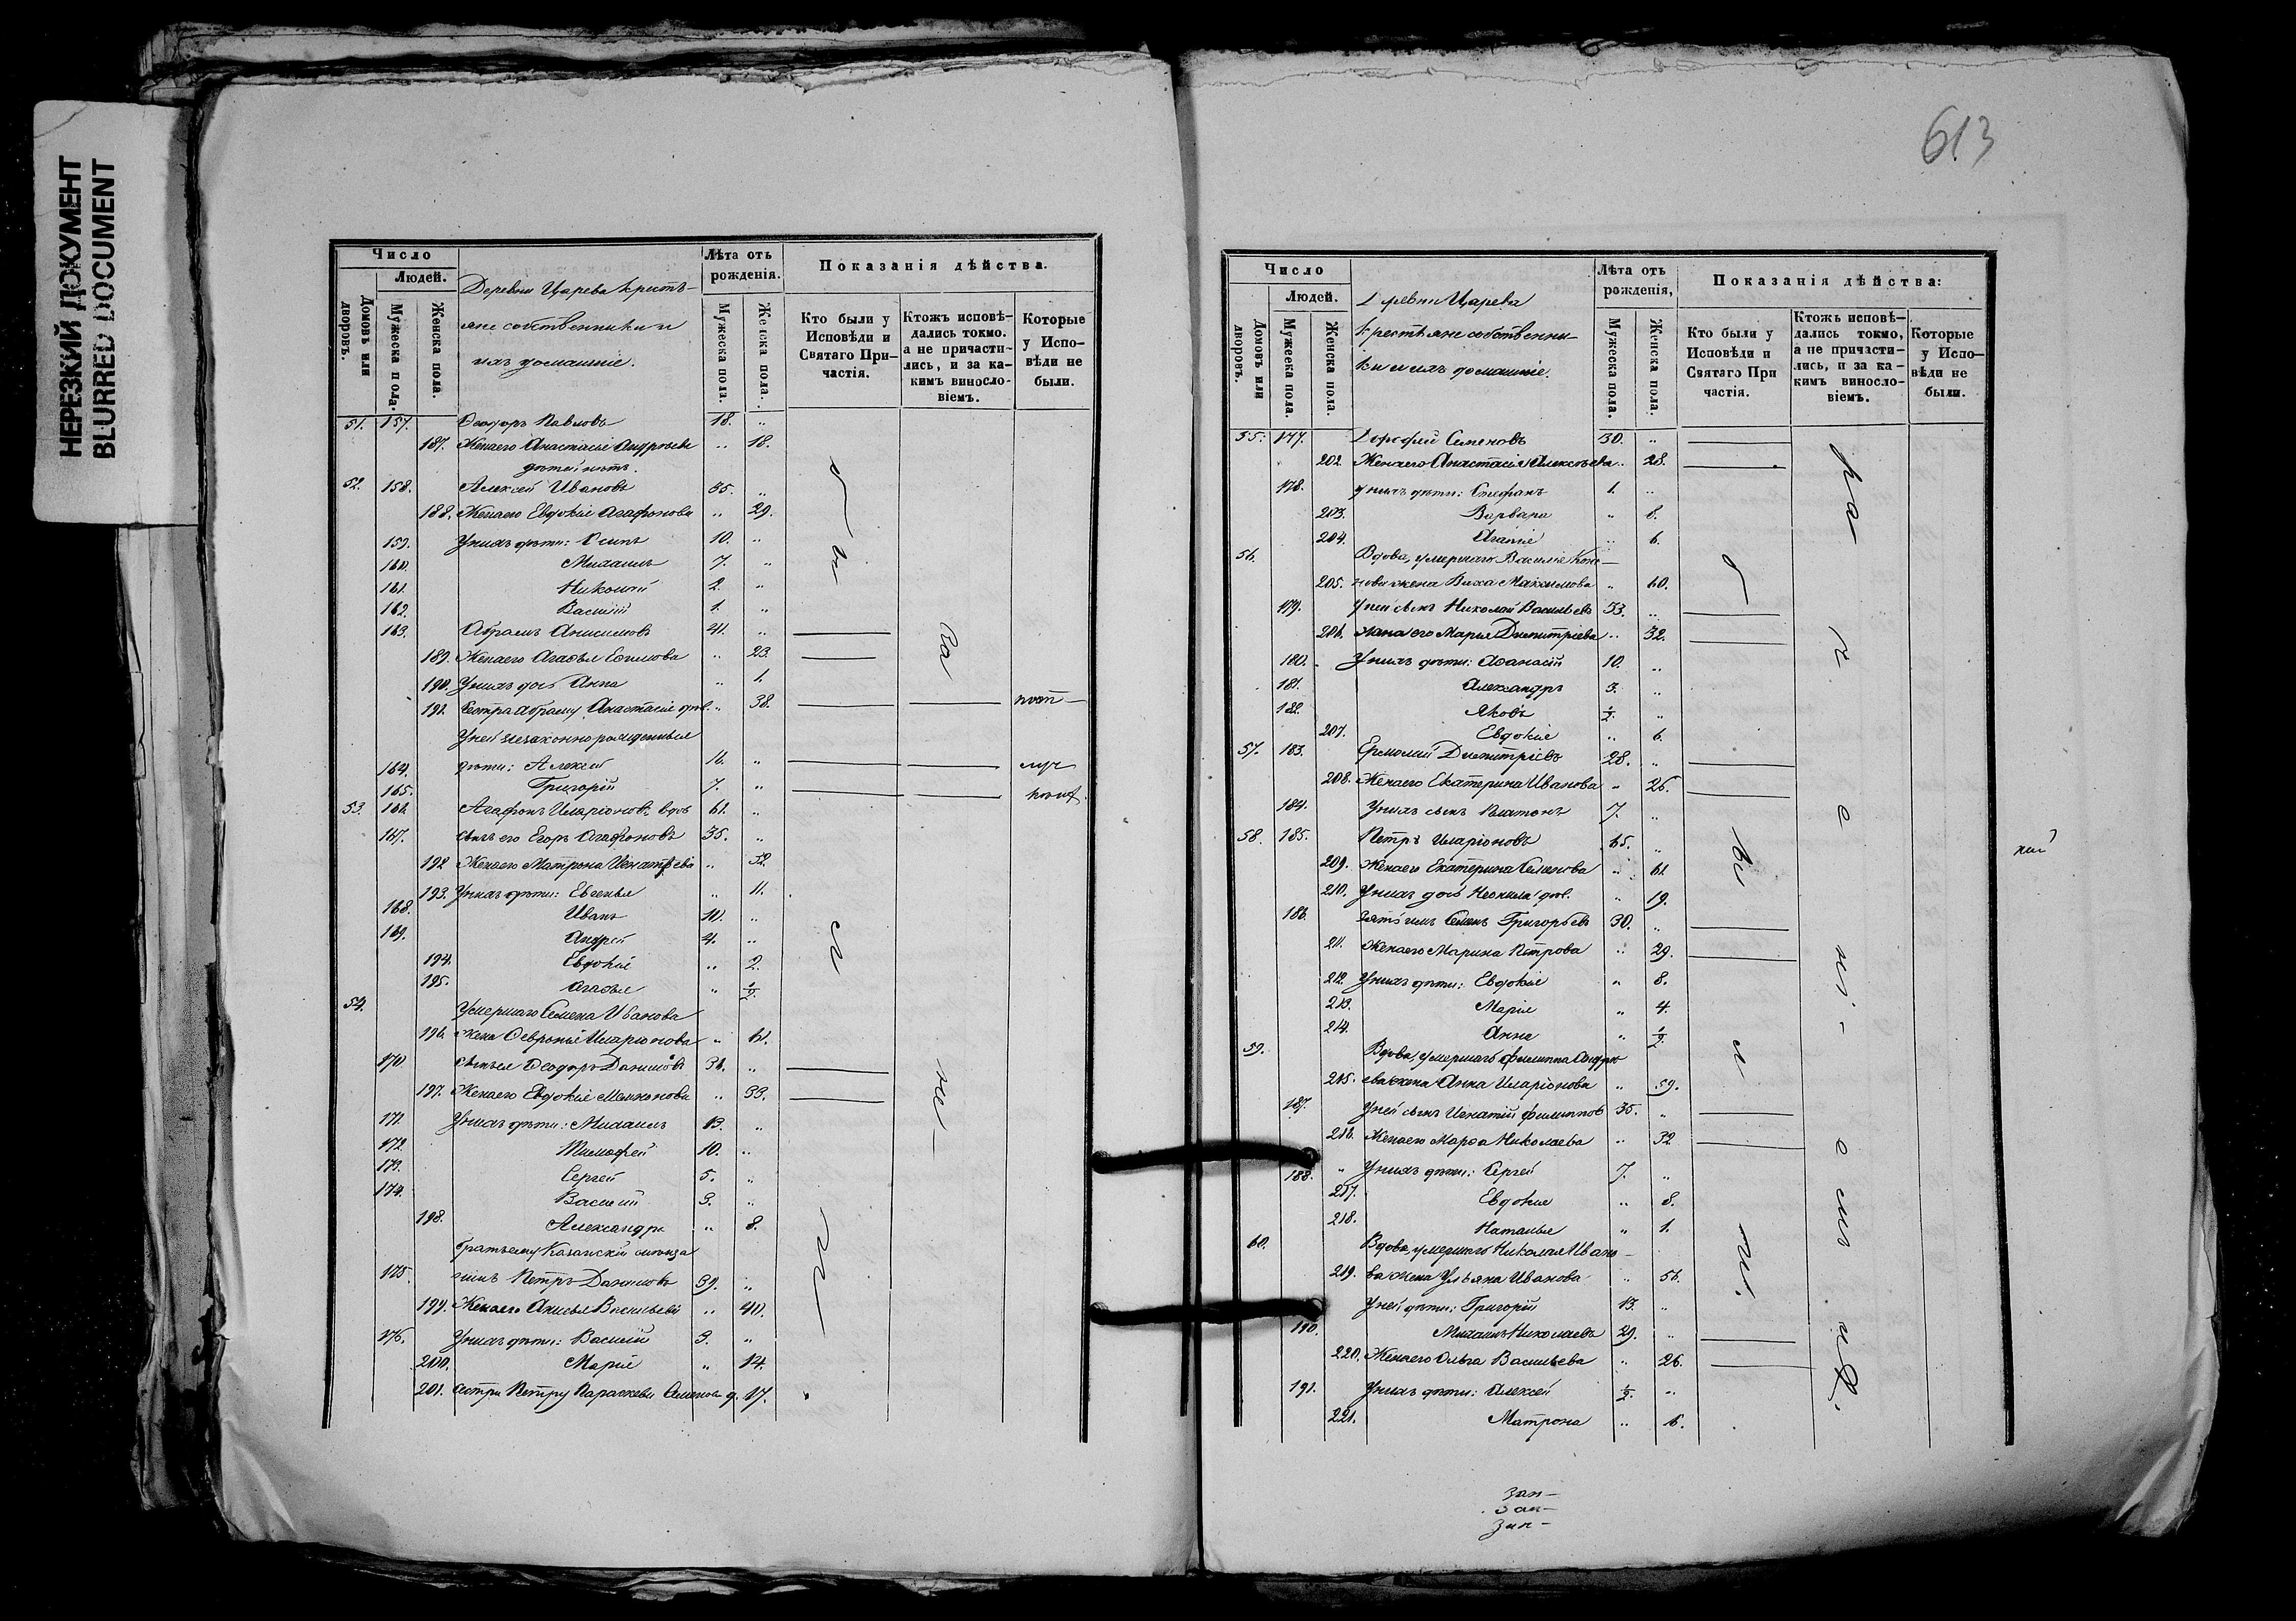 НЕРЕЗКИЙ ДОКУМЕНТ
BLURRED DOCUMENT
Число
Людей.
Домовъ или дворовъ.
Мужеска пола.
Женска пола.
Деревни Царева Крестья-
не собственники и
ихъ домашніе.
Лѣта отъ рожденія.
Мужеска пола.
Женска пола.
Показанія дѣйства.
Кто были у Исповѣди и Святаго При-частія.
Ктожъ исповѣ-дались токмо. а не причасти-лись, и за ка-кимъ винносло-віемъ.
Которые у Испо-вѣди не были.
51. 157. Ѳеодоръ Павловъ 18. „
187. Жена его Анастасія Андреева „ 18.
дѣтей нѣтъ.
52. 158. Алексѣй Ивановъ 35. „
188. Жена его Евдокія Агафонова „ 29.
159. У нихъ дѣти: Осипъ 10. „
160. Михаилъ 7. „
161. Николай 2. „
162. Василій 1. „
163. Абрамъ Анисимовъ 41. „
189. Жена его Агаѳья Еѳимова „ 23.
190. У нихъ дочь Анна „ 1.
191. Сестра Абраму Анастасія „ 38.
У ней незаконнорожденные
164. дѣти: Алексѣй 16. „
165. Григорій 7. „
53. 166. Агафонъ Иларіоновъ вдовъ 61. „
167. сынъ его Егоръ Агафоновъ 35. „
192 Жена его Матрона Игнатьева „ 32.
193. У нихъ дѣти: Евгенья „ 11.
168. Иванъ 10. „
169. Андрей 4. „
194. Евдокія „ 2.
195. Агаѳья „ 1/2.
54. Умершаго Семена Иванова
196. жена Ѳевронія Иларіонова „ 61.
170 сынъ ея Ѳеодоръ Даниловъ 36. „
197. Жена его Евдокія „ 33.
171. У нихъ дѣти: Михаилъ 13. „
172. Тимоѳей 10. „
173. Сергѣй 5. „
174. Василій 3. „
198. Александра „ 8.
Братъ ему Казанскій
175. Петръ Даниловъ 39. „
199. Жена его Анисья Васильева „ 40.
176. У нихъ дѣти: Василій 3. „
200. Марія „ 14.
201. сестра Петру Параскева Семенова д. 17.
613
Число
Людей.
Домовъ или дворовъ.
Мужеска пола.
Женска пола.
Деревни Царева
Крестьяне собственни-
ки и ихъ домашніе.
Лѣта отъ рожденія,
Мужеска пола.
Женска пола.
Показанія дѣйства:
Кто были у Исповѣди и Святаго При частія.
Ктожъ исповѣ-дались токмо, а не причасти-лись, и за ка-кимъ винносло-віемъ.
Которые у Испо-вѣди не были.
55. 177. Дорофей Семеновъ 30. „
202. Жена его Анастасія Алексѣева „ 28.
178. У нихъ дѣти: Стефанъ 1. „
203. Варвара „ 8.
204. Агапія „ 6.
56. Вдова, умершаго Василія Коно-
205. нова жена Васса Максимова „ 60.
179. У ней сынъ Николай Васильевъ 33. „
206. жена его Марья Димитріева „ 32.
180. У нихъ дѣти: Аѳанасій 10. „
181. Александръ 3. „
182. Яковъ 1/2. „
207. Евдокія „ 6.
57. 183. Ермолай Димитріевъ 28. „
208. Жена его Екатерина Иванова „ 26.
184. У нихъ сынъ Платонъ 7. „
58. 185. Петръ Иларіоновъ 65. „
209. Жена его Екатерина Семенова „ 61.
210. У нихъ дочь Неонила дѣв. „ 19.
186. зять имъ Семенъ Григорьевъ 30. „
211. Жена его Марина Петрова „ 29.
212. У нихъ дѣти: Евдокія „ 8.
213. Марія „ 4.
214. Анна „ 1/2
59. Вдова, умершаго Филиппа Андре
215. ева жена Анна Иларіонова „ 59.
187. У ней сынъ Игнатій Филипповъ 35. „
216. Жена его Марѳа Николаева „ 32
188. У нихъ дѣти: Сергѣй 7. „
217. Евдокія „ 8.
218. Наталья „ 1.
60. Вдова, умершаго Николая Ивано-
219. ва жена Ульяна Иванова „ 56.
У ней дѣти: Григорій 13. „
190. Михаилъ Николаевъ 29. „
220. Жена его Ольга Васильева „ 26.
191. У нихъ дѣти: Алексѣй 1/2. „
221. Матрона „ 6.